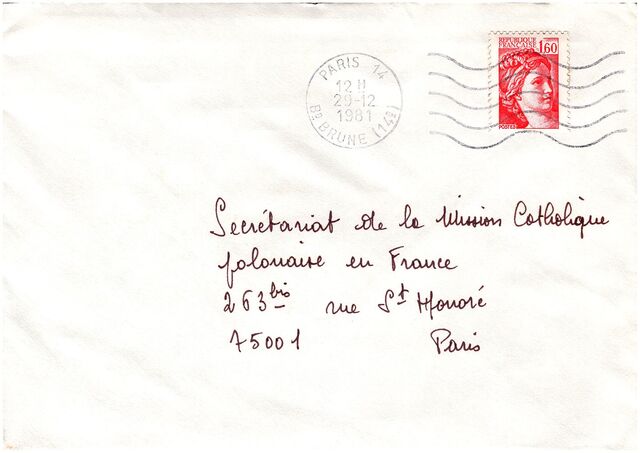 PARIS 14
12 H
29-12
1981
Bd BRUNE (14E)
REPUBLIQUE
FRANÇAISE
1,60
POSTES
Secrétariat de la Mission Catholique
polonaise en France
263 bis rue St Honoré
75001 Paris